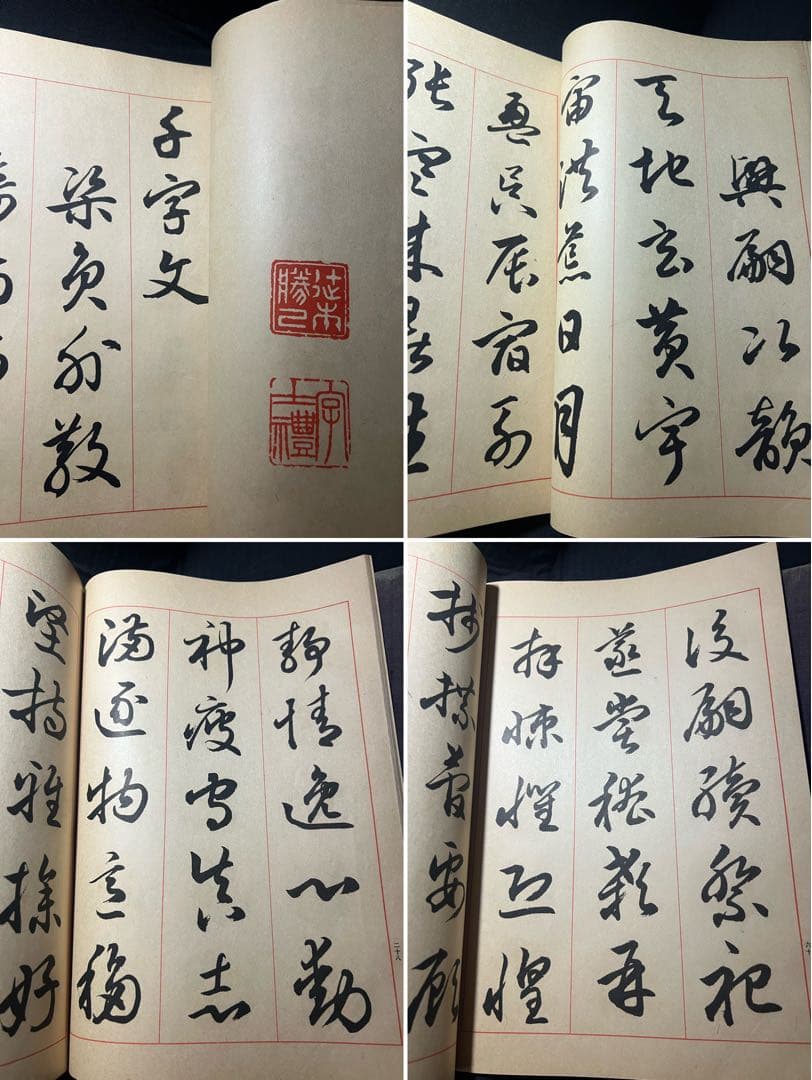 千字文
梁員外散
勝己
字士禮
興嗣次韻
天地玄黃宇
宙洪荒日月
盈昃辰宿列
張寒來暑往
靜情逸心動
神疲守真志
滿逐物意移
堅持雅操好
二十八
後嗣續祭祀
蒸嘗稽顙再
拜悚懼恐惶
牋牒簡要顧